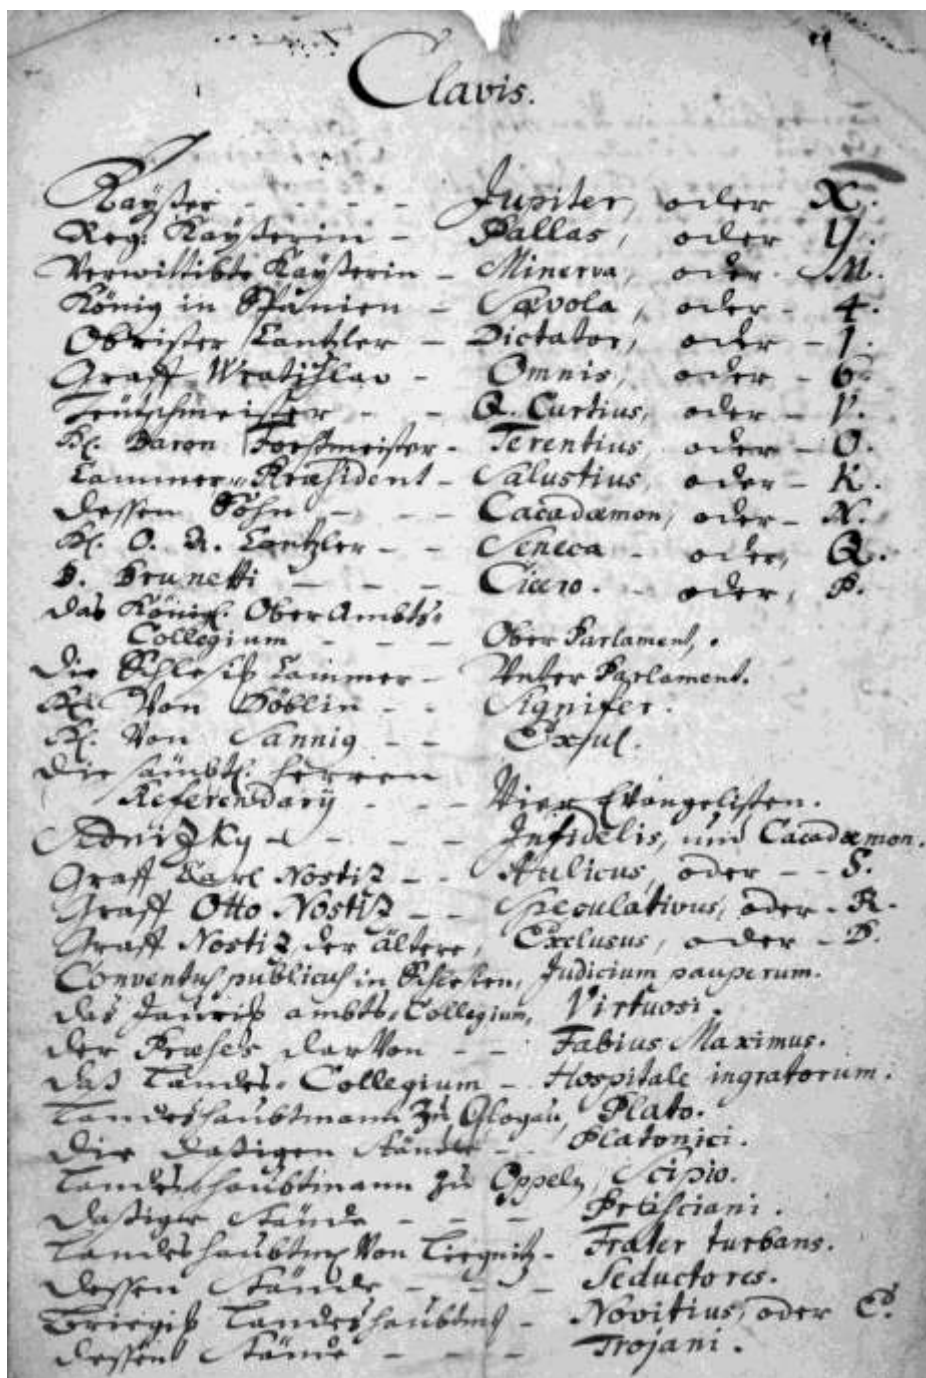 Clavis.
Kaÿser - - - - Jupiter, oder X.
Reg: Kaÿserin - Pallas, oder Y.
Verwittibte Kaÿserin - Minerva, oder M.
König in Spanien - Scævola, oder - 4.
Obrister Cantzler - Dictator, oder - 1.
Graff Wratislav - Omnis, oder - 6.
Teütschmeister - - Q. Curtius, oder - V.
H. Baron Forstmeister - Terentius, oder - O.
Cammer-Præsident - Salustius, oder - K.
dessen Sohn - - - Cacadæmon, oder - N.
H. O. A. Cantzler - - Seneca - oder, Q.
D. Brunetti - - - Cicero. - oder, P.
das Königl. OberAmbts-
Collegium - - - Ober Parlament,.
Die Schlesis. Cammer - Unter Parlament.
H. Von Döblin - - Signifer.
H. Von Sannig - - Exsul.
die sämbtl. Herren
Referendarÿ - - - Vier Evangelisten.
Sednizky - - - - Infidelis, und Cacadæmon.
Graff Carl Nostiz - - Aulicus, oder - - S.
Graff Otto Nostiz - - Speculativus, oder - R.
Graff Nostiz der ältere, Exclusus, oder - D.
Conventus publicus in Schlesien, Judicium pauperum.
das Jauris. ambts-Collegium, Virtuosi.
der Præses darvon - - Fabius Maximus.
das Landes-Collegium - Hospitale ingratorum.
Landeshaubtmann zu Glogau, Plato.
die dasigen Stände - - Platonici.
Landeshaubtmann zu Oppeln, Scipio.
dasige Stände - - - Prisciani.
Landeshaubtm. Von Liegnitz - Frater turbans.
dessen Stände - - - Seductores.
Briegis. Landeshaubtm. - Novitius, oder C.
dessen Stände - - - Trojani.